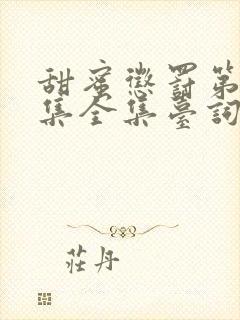 甜蜜懲罰第
集全集臺詞
莊丹